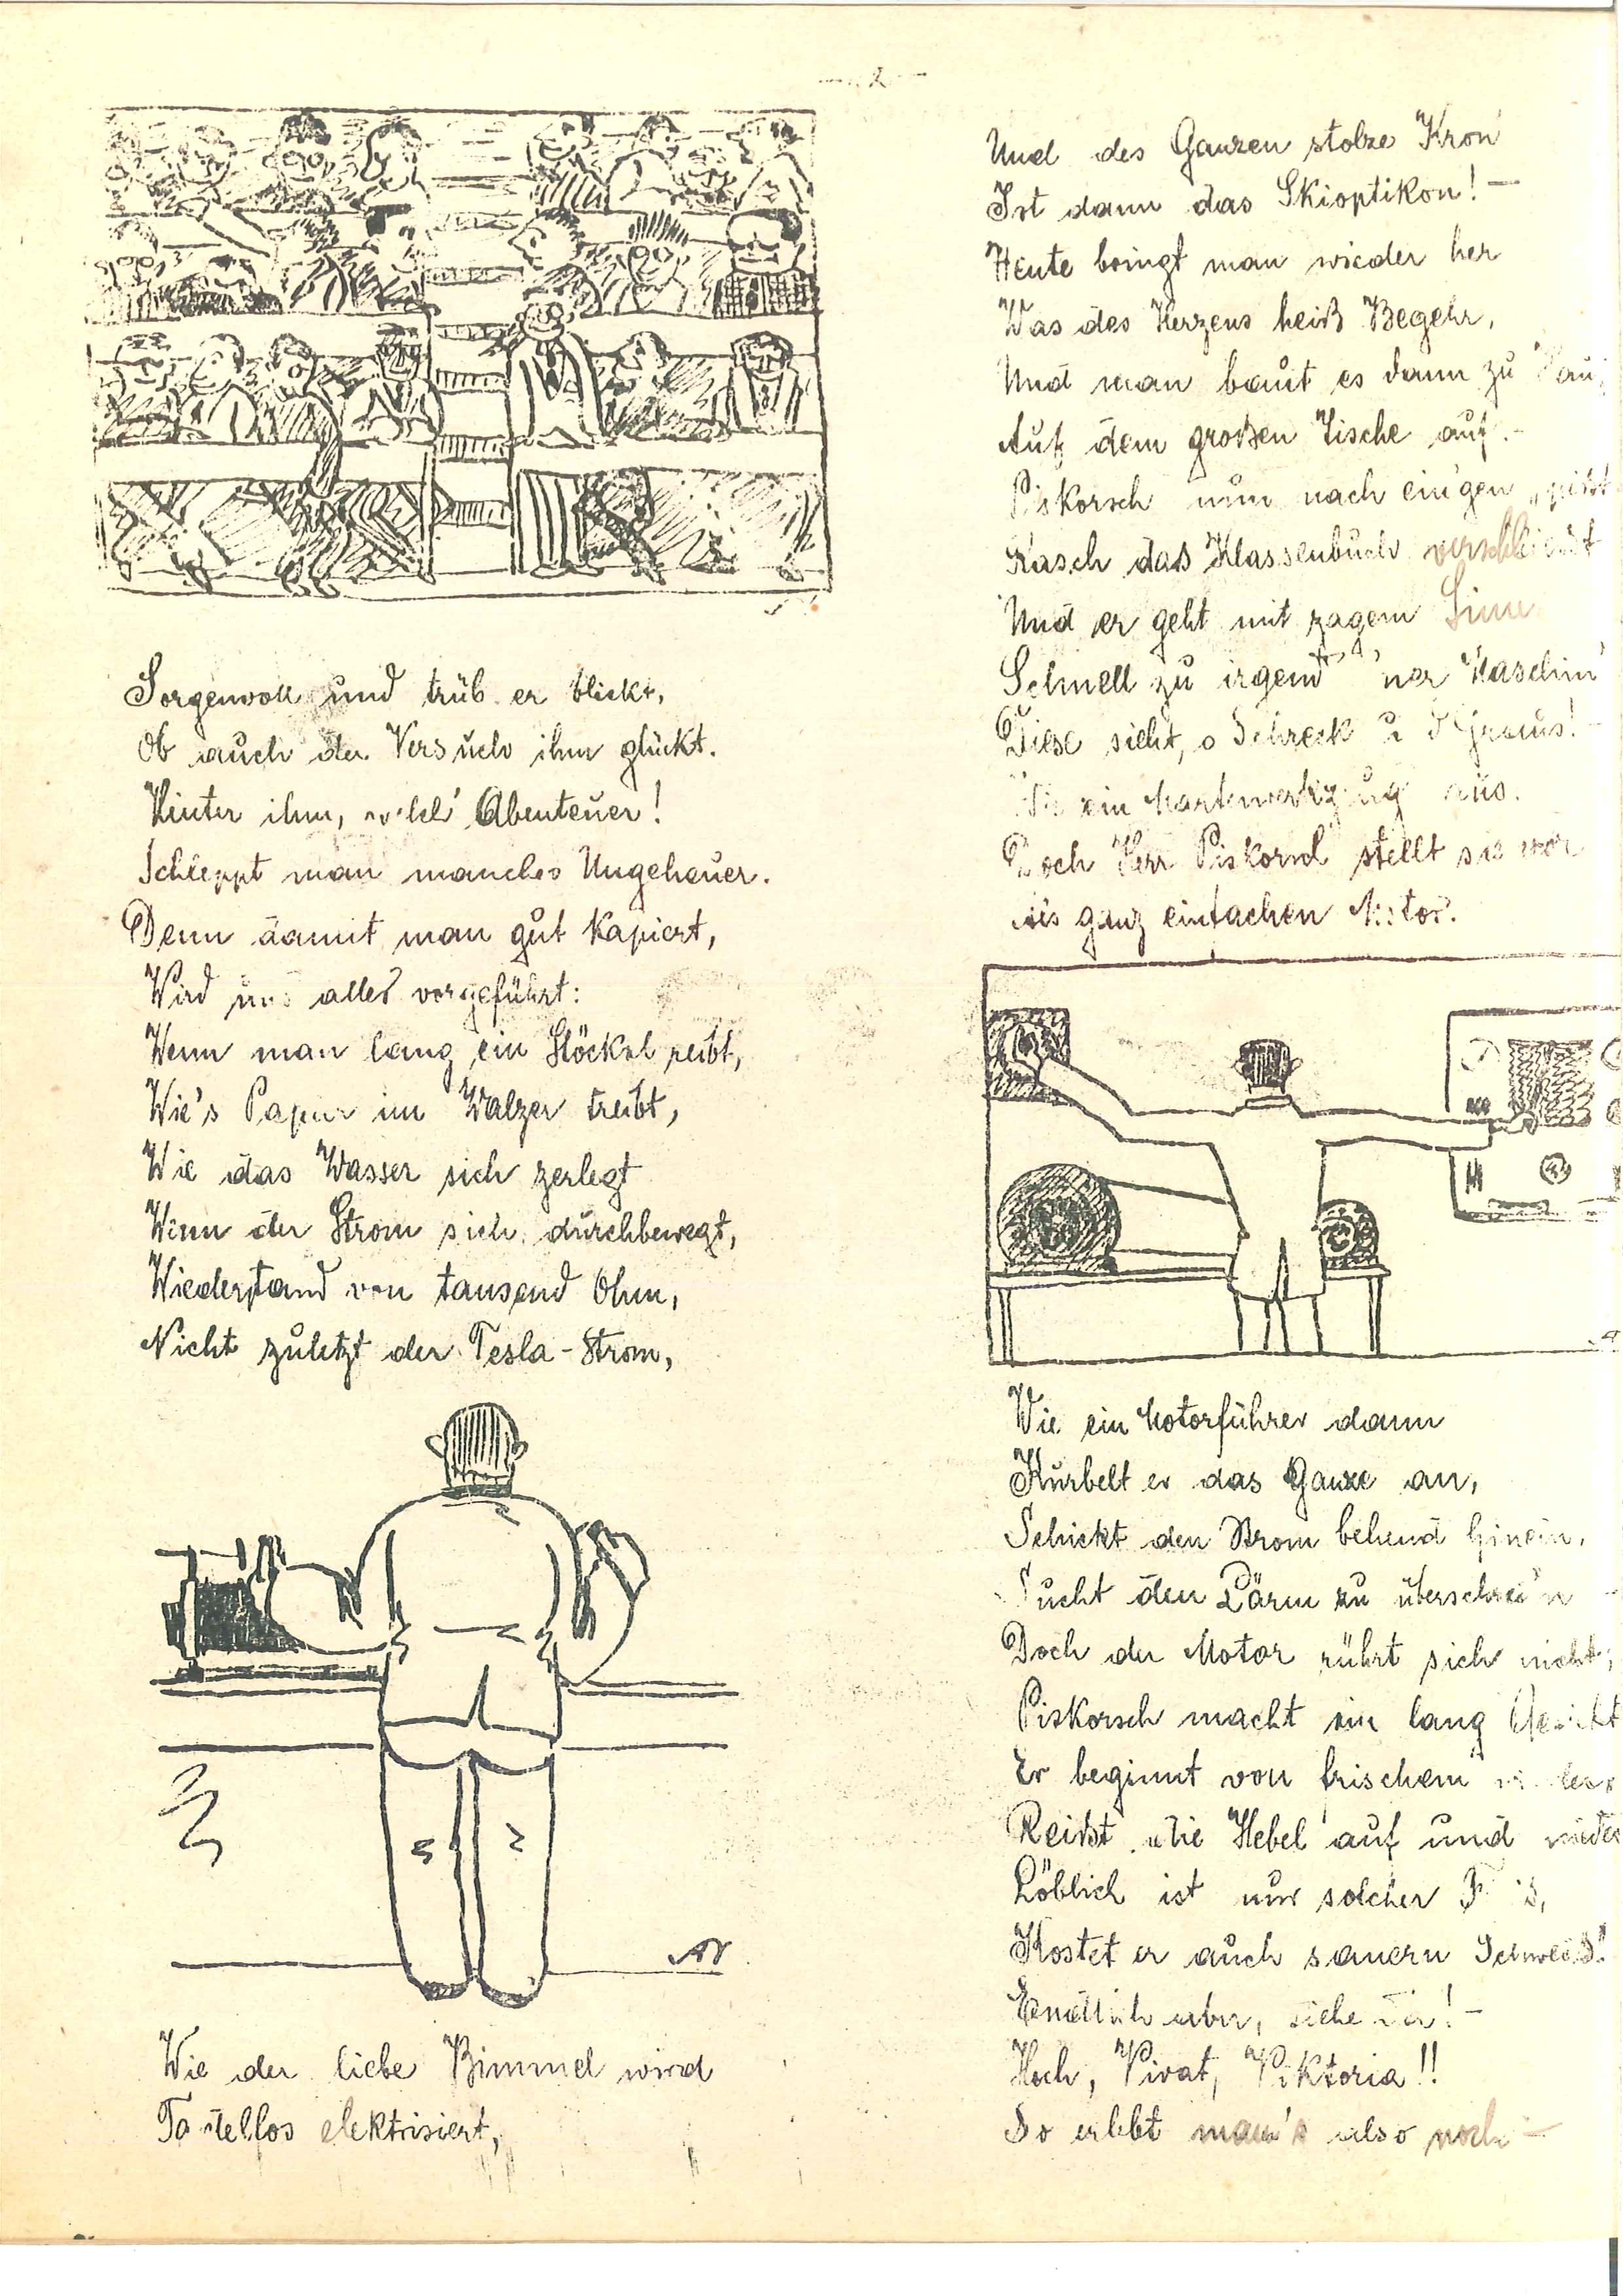 - 2 -
Sorgenvoll und trüb er blickt,
Ob auch der Versuch ihm glückt.
Hinter ihm, welch' Abenteuer!
Schleppt man manches Ungeheuer.
Denn damit man gut kapiert,
Wird uns alles vorgeführt:
Wenn man lang ein Stöckel reibt,
Wie's Papier im Walzer treibt,
Wie das Wasser sich zerlegt
Wenn der Strom sich durchbewegt,
Wiederstand von tausend Ohm,
Nicht zuletzt der Tesla-Strom,
Wie der liebe Bimmel wird
Tadellos elektrisiert,
Und des Ganzen stolze Kron'
Ist dann das Skioptikon! -
Heute bringt man wieder her
Was des Herzens heiß Begehr,
Und man baut es dann zu
Auf dem großen Tische auf. -
Piskorsch nun nach ein'gen „pißt
Rasch das Klassenbuch verschließt
Und er geht mit zagem Sinn
Schnell zu irgend 'ner Maschin'
Diese sieht, o Schreck u Graus!
Wie ein aus.
Doch Herr Piskorsch stellt sie vor
Als ganz einfachen Motor.
Wie ein Motorführer dann
Kurbelt er das Ganze an,
Schickt den Strom behend hinein,
Sucht den Lärm zu überschrei'n -
Doch der Motor rührt sich nicht,
Piskorsch macht ein lang Gesicht
Er beginnt von frischem wieder
Reißt die Hebel auf und nieder
Löblich ist nur solcher
Kostet er auch sauern Schweiß!
Endlich aber, siehe da! -
Hoch, Vivat, Viktoria!!
So erlebt man's also noch -